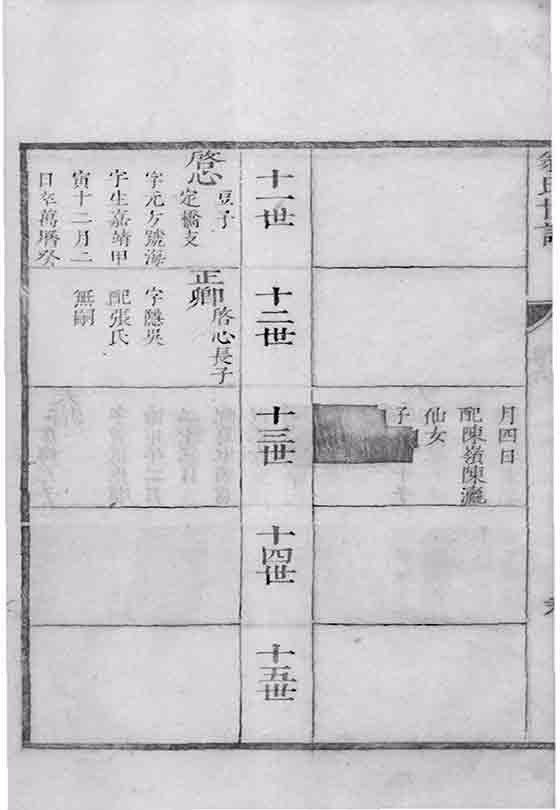 氏世譜
月四日
配陳嶺陳
仙女
子
十一世
啓心
豆子
定橋支
字元方號海
字生嘉靖甲
寅十二月二
日卒萬曆癸
十二世
正卿
啓心長子
字隱吳
配張氏
無嗣
十三世
十四世
十五世